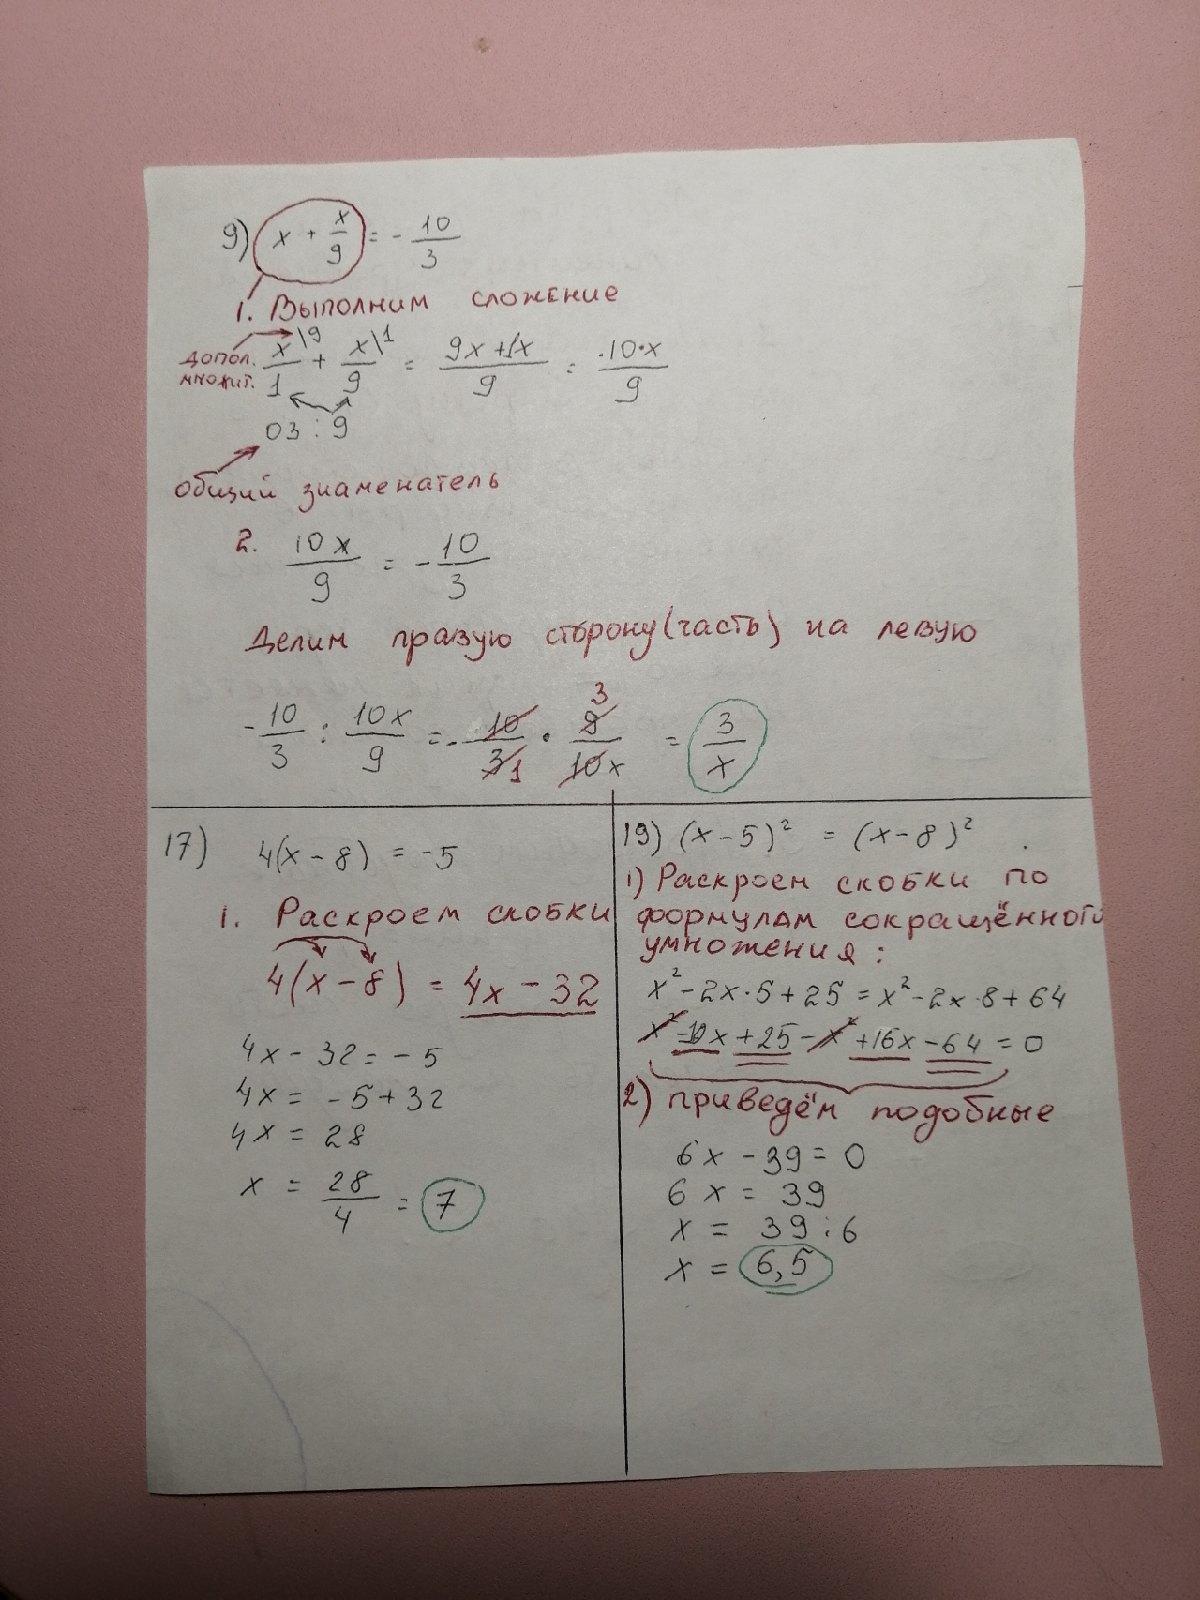 9) x + x/9 = - 10/3
1. Выполним сложение
допол. множит. x\9/1 + x\1/9 = 9x+1x/9 = 10·x/9
ОЗ : 9
общий знаменатель
2. 10x/9 = - 10/3
Делим правую сторону (часть) на левую
- 10/3 : 10x/9 = - 10/3 1 · 3 9/10x = 3/x
17) 4(x - 8) = -5
1. Раскроем скобки
4(x - 8) = 4x - 32
4x - 32 = - 5
4x = - 5 + 32
4x = 28
x = 28/4 = 7
19) (x - 5)² = (x - 8)²
1) Раскроем скобки по
формулам сокращённого
умножения:
x² - 2x·5 + 25 = x² - 2x·8 + 64
x² - 10x + 25 - x² + 16x - 64 = 0
2) приведём подобные
6x - 39 = 0
6x = 39
x = 39 : 6
x = 6,5